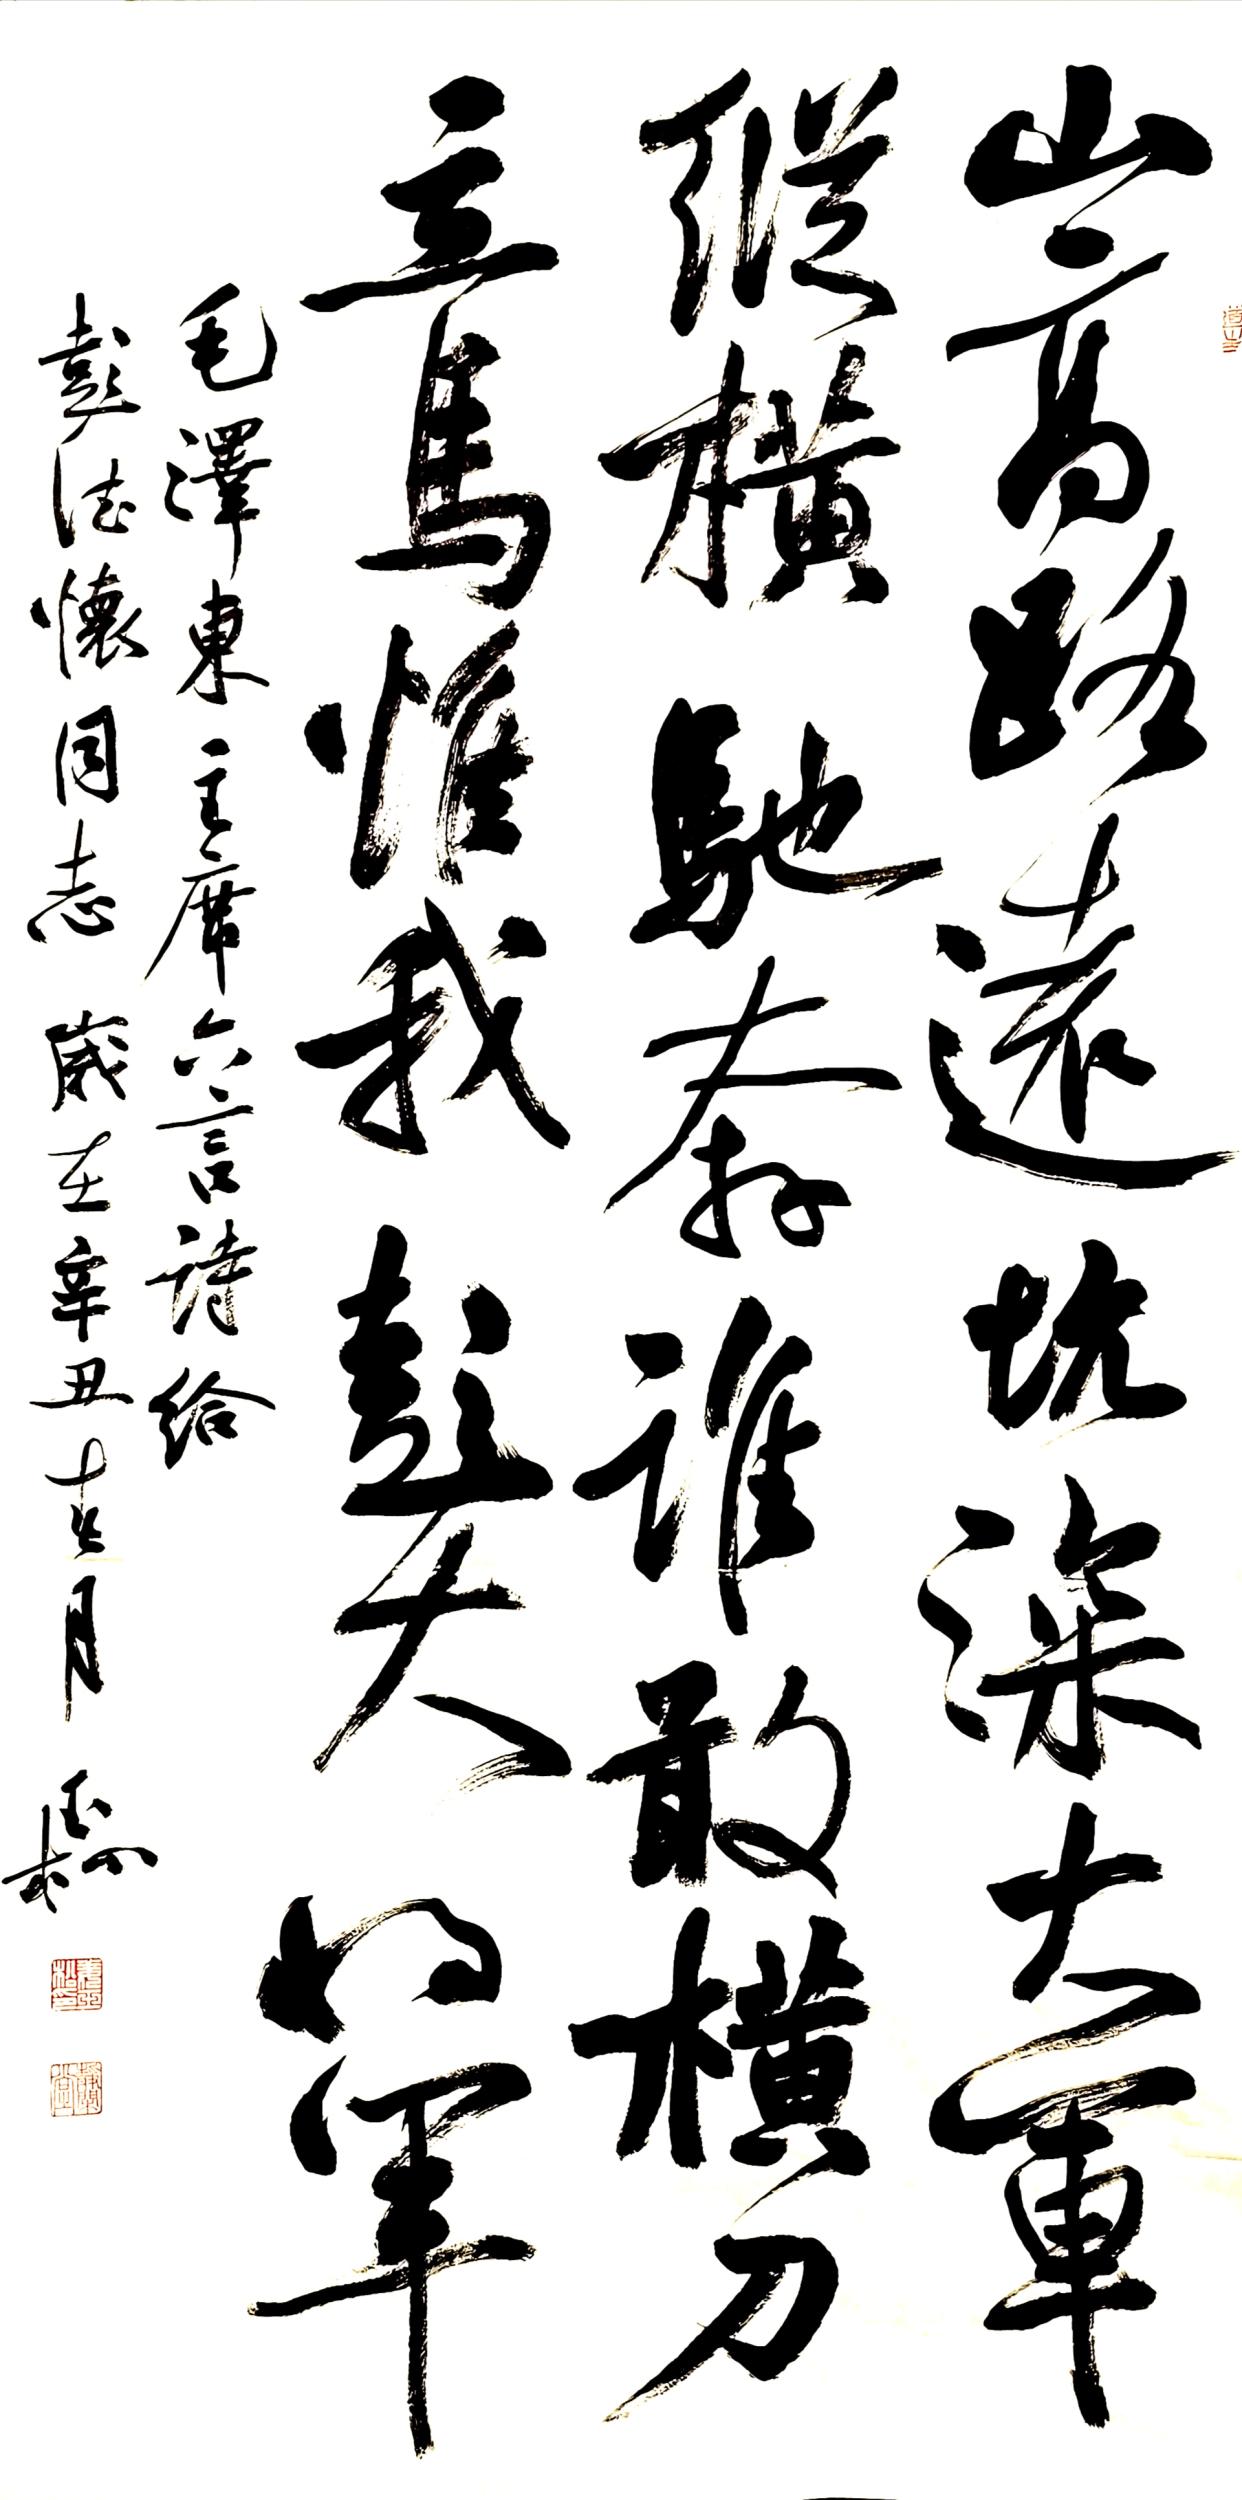 山高路遠坑深大軍
縱橫馳奔誰敢橫刀
立馬惟我彭大將軍
毛澤東主席六言詩給
彭德懷同志 歲在辛丑 月